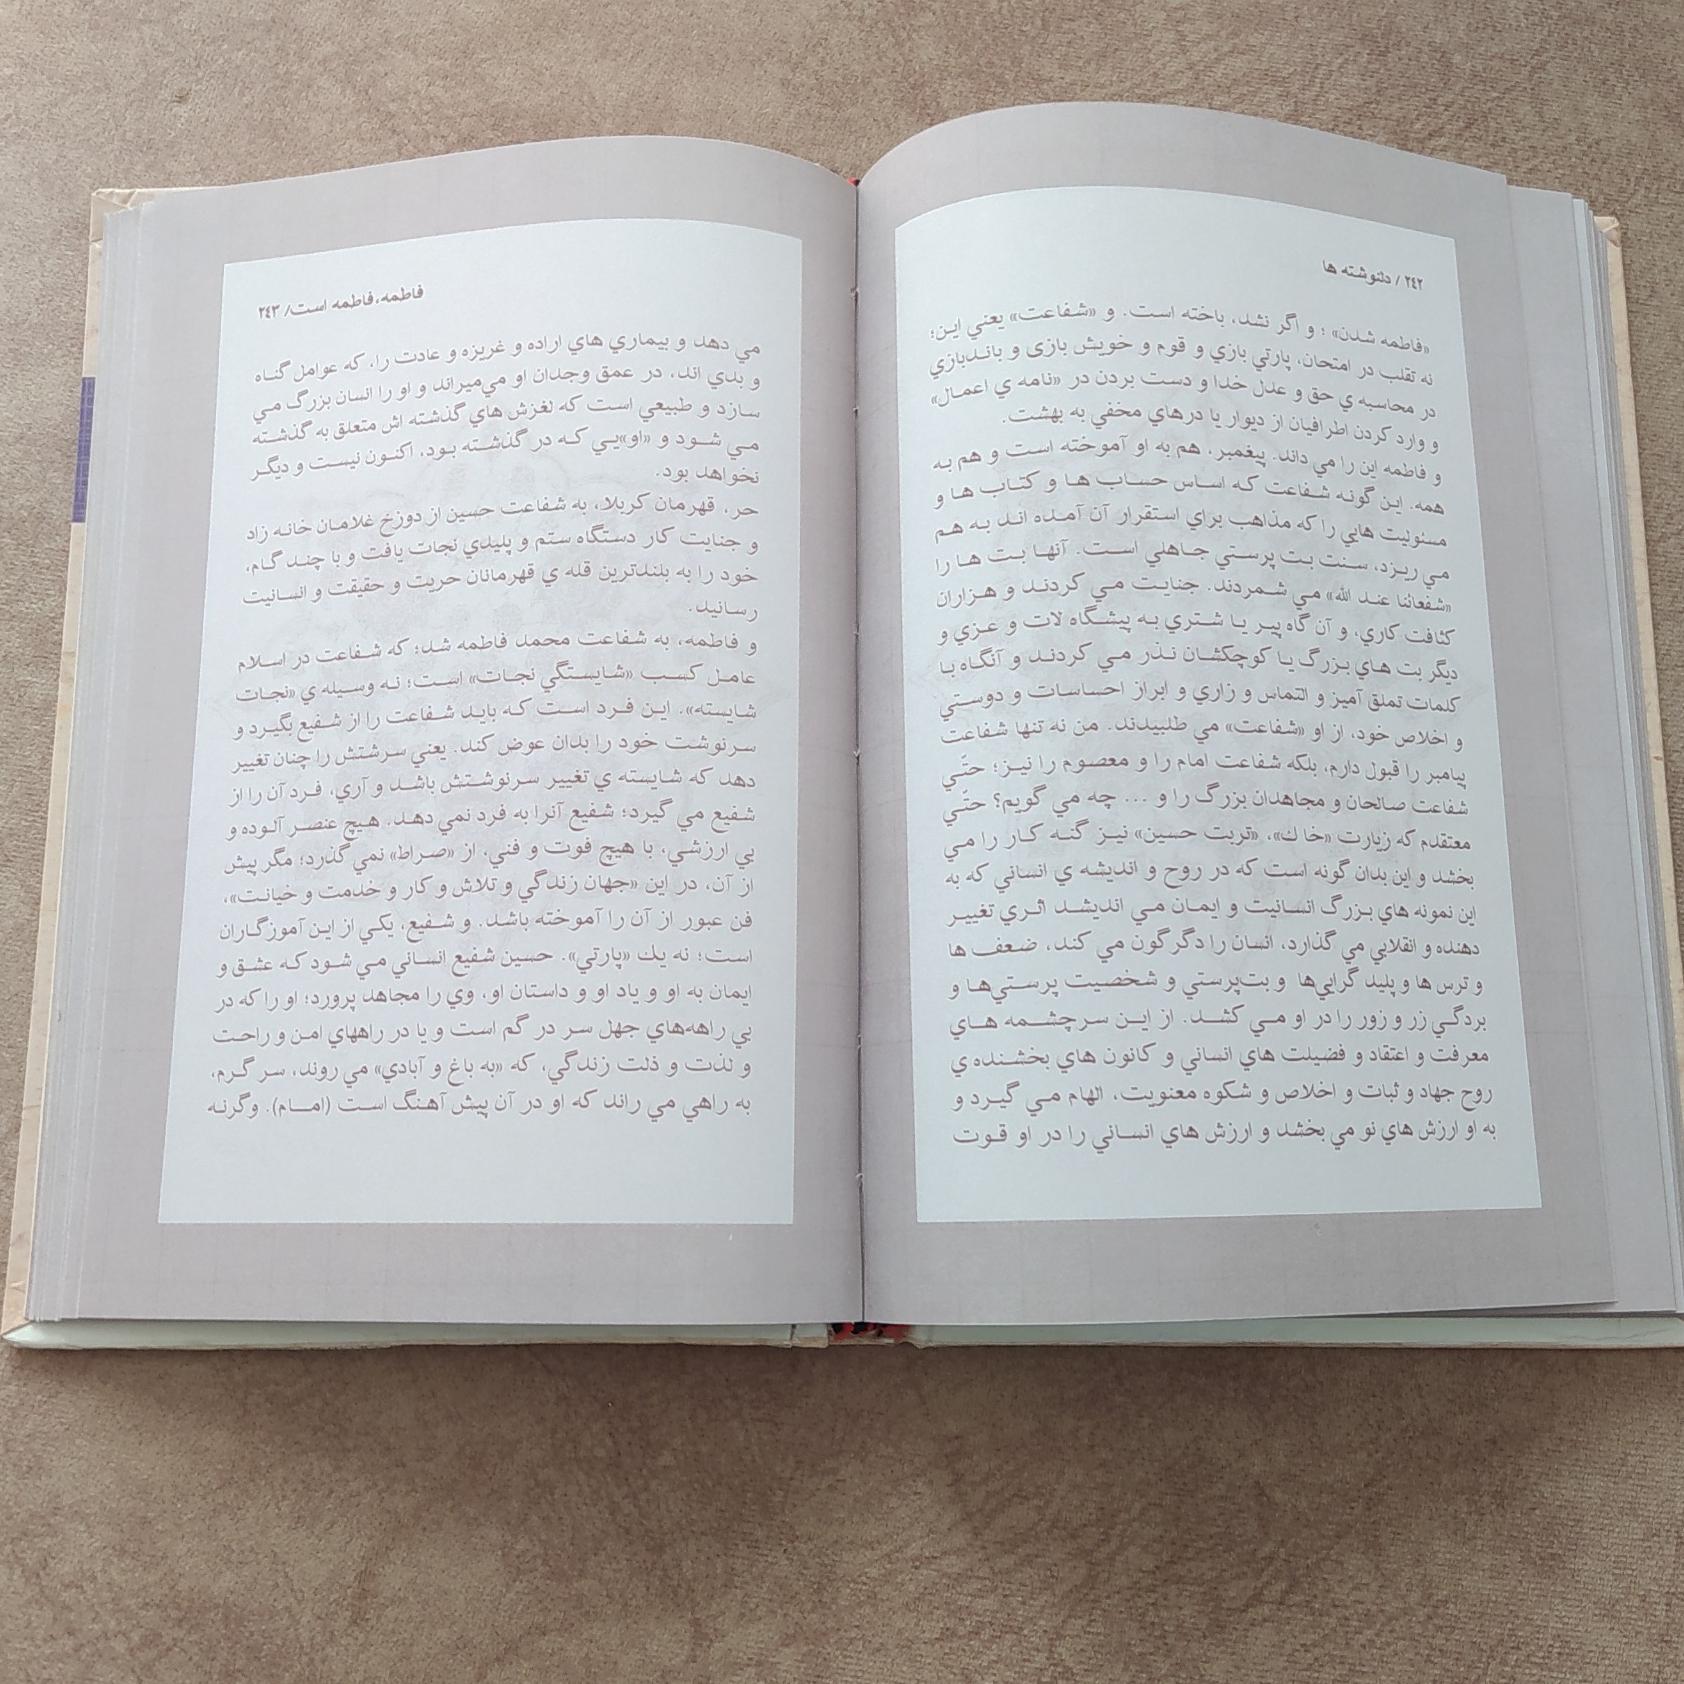 ۲٤۲ / دلنوشته ها
«فاطمه شدن» ؛ و اگر نشد، باخته است. و «شفاعت» يعني اين؛
نه تقلب در امتحان، پارتي بازي و قوم و خويش بازی و باندبازي
در محاسبه ي حق و عدل خدا و دست بردن در «نامه ي اعمال»
و وارد كردن اطرافيان از ديوار يا درهاي مخفي به بهشت.
و فاطمه اين را مي داند. پيغمبر، هم به او آموخته است و هم به
همه. اين گونه شفاعت كه اساس حساب ها و كتاب ها و
مسئوليت هايي را كه مذاهب براي استقرار آن آمده اند به هم
مي ريزد، سنت بت پرستي جاهلي است. آنها بت ها را
«شفعائنا عند الله» مي شمردند. جنايت مي كردند و هزاران
كثافت كاري، و آن گاه پير يا شتري به پيشگاه لات و عزي و
ديگر بت هاي بزرگ يا كوچكشان نذر مي كردند و آنگاه با
كلمات تملق آميز و التماس و زاري و ابراز احساسات و دوستي
و اخلاص خود، از او «شفاعت» مي طلبيدند. من نه تنها شفاعت
پيامبر را قبول دارم، بلكه شفاعت امام را و معصوم را نيز؛ حتّي
شفاعت صالحان و مجاهدان بزرگ را و ... چه مي گويم؟ حتّي
معتقدم كه زيارت «خاك»، «تربت حسين» نيز گنه كار را مي
بخشد و اين بدان گونه است كه در روح و انديشه ي انساني كه به
اين نمونه هاي بزرگ انسانيت و ايمان مي انديشد اثري تغيير
دهنده و انقلابي مي گذارد، انسان را دگرگون مي كند، ضعف ها
و ترس ها و پليد گرايي‌ها و بت‌پرستي و شخصيت پرستي‌ها و
بردگي زر و زور را در او مي كشد. از اين سرچشمه هاي
معرفت و اعتقاد و فضيلت هاي انساني و كانون هاي بخشنده ي
روح جهاد و ثبات و اخلاص و شكوه معنويت، الهام مي گيرد و
به او ارزش هاي نو مي بخشد و ارزش هاي انساني را در او قوت
فاطمه، فاطمه است/ ۲٤۳
مي دهد و بيماري هاي اراده و غريزه و عادت را، كه عوامل گناه
و بدي اند، در عمق وجدان او مي‌ميراند و او را انسان بزرگ مي
سازد و طبيعي است كه لغزش هاي گذشته اش متعلق به گذشته
مي شود و «او»يي كه در گذشته بود، اكنون نيست و ديگر
نخواهد بود.
حر، قهرمان كربلا، به شفاعت حسين از دوزخ غلامان خانه زاد
و جنايت كار دستگاه ستم و پليدي نجات يافت و با چند گام،
خود را به بلندترين قله ي قهرمانان حريت و حقيقت و انسانيت
رسانيد.
و فاطمه، به شفاعت محمد فاطمه شد؛ كه شفاعت در اسلام
عامل كسب «شايستگي نجات» است؛ نه وسيله ي «نجات
شايسته». اين فرد است كه بايد شفاعت را از شفيع بگيرد و
سرنوشت خود را بدان عوض كند. يعني سرشتش را چنان تغيير
دهد كه شايسته ي تغيير سرنوشتش باشد و آري، فرد آن را از
شفيع مي گيرد؛ شفيع آنرا به فرد نمي دهد. هيچ عنصر آلوده و
بي ارزشي، با هيچ فوت و فني، از «صراط» نمي گذرد؛ مگر پيش
از آن، در اين «جهان زندگي و تلاش و كار و خدمت و خيانت»،
فن عبور از آن را آموخته باشد. و شفيع، يكي از اين آموزگاران
است؛ نه يك «پارتي». حسين شفيع انساني مي شود كه عشق و
ايمان به او و ياد او و داستان او، وي را مجاهد پرورد؛ او را كه در
بي راهه‌هاي جهل سر در گم است و يا در راههاي امن و راحت
و لذت و ذلت زندگي، كه «به باغ و آبادي» مي روند، سر گرم،
به راهي مي راند كه او در آن پيش آهنگ است (امام). وگرنه